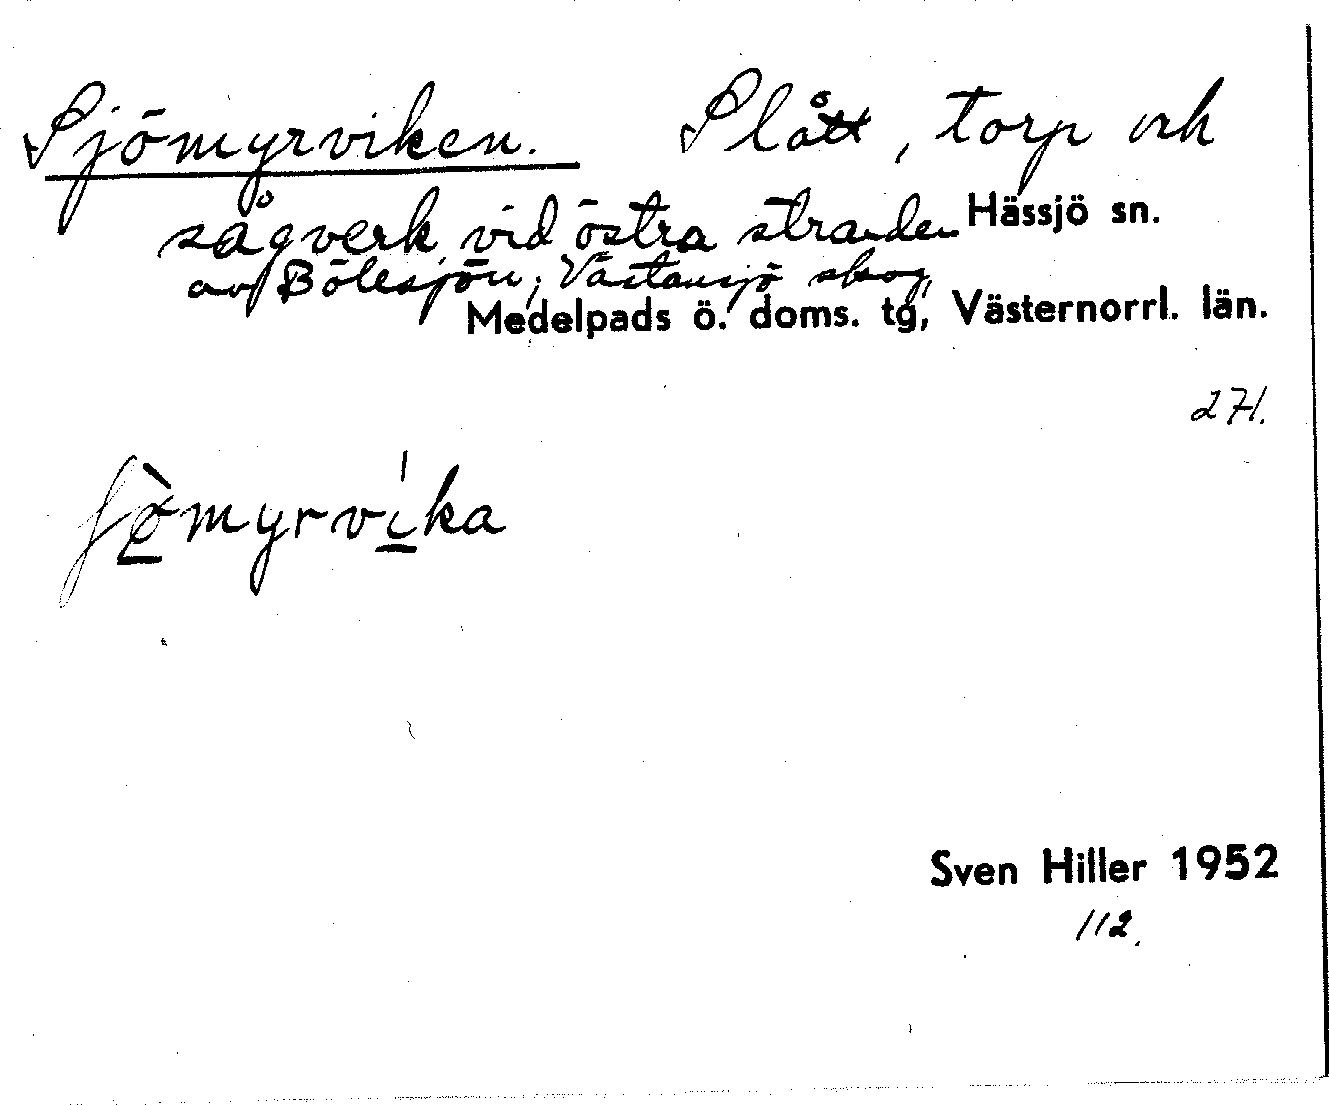 Sjömyrviken. Slått, torp och
sågverk vid östra stranden Hässjö sn.
av Bölesjön; Västansjö skog,
Medelpads ö. doms. tg, Västernorrl. län.
271.
ʃö̀myrvi̍ka
Sven Hiller 1952
112.